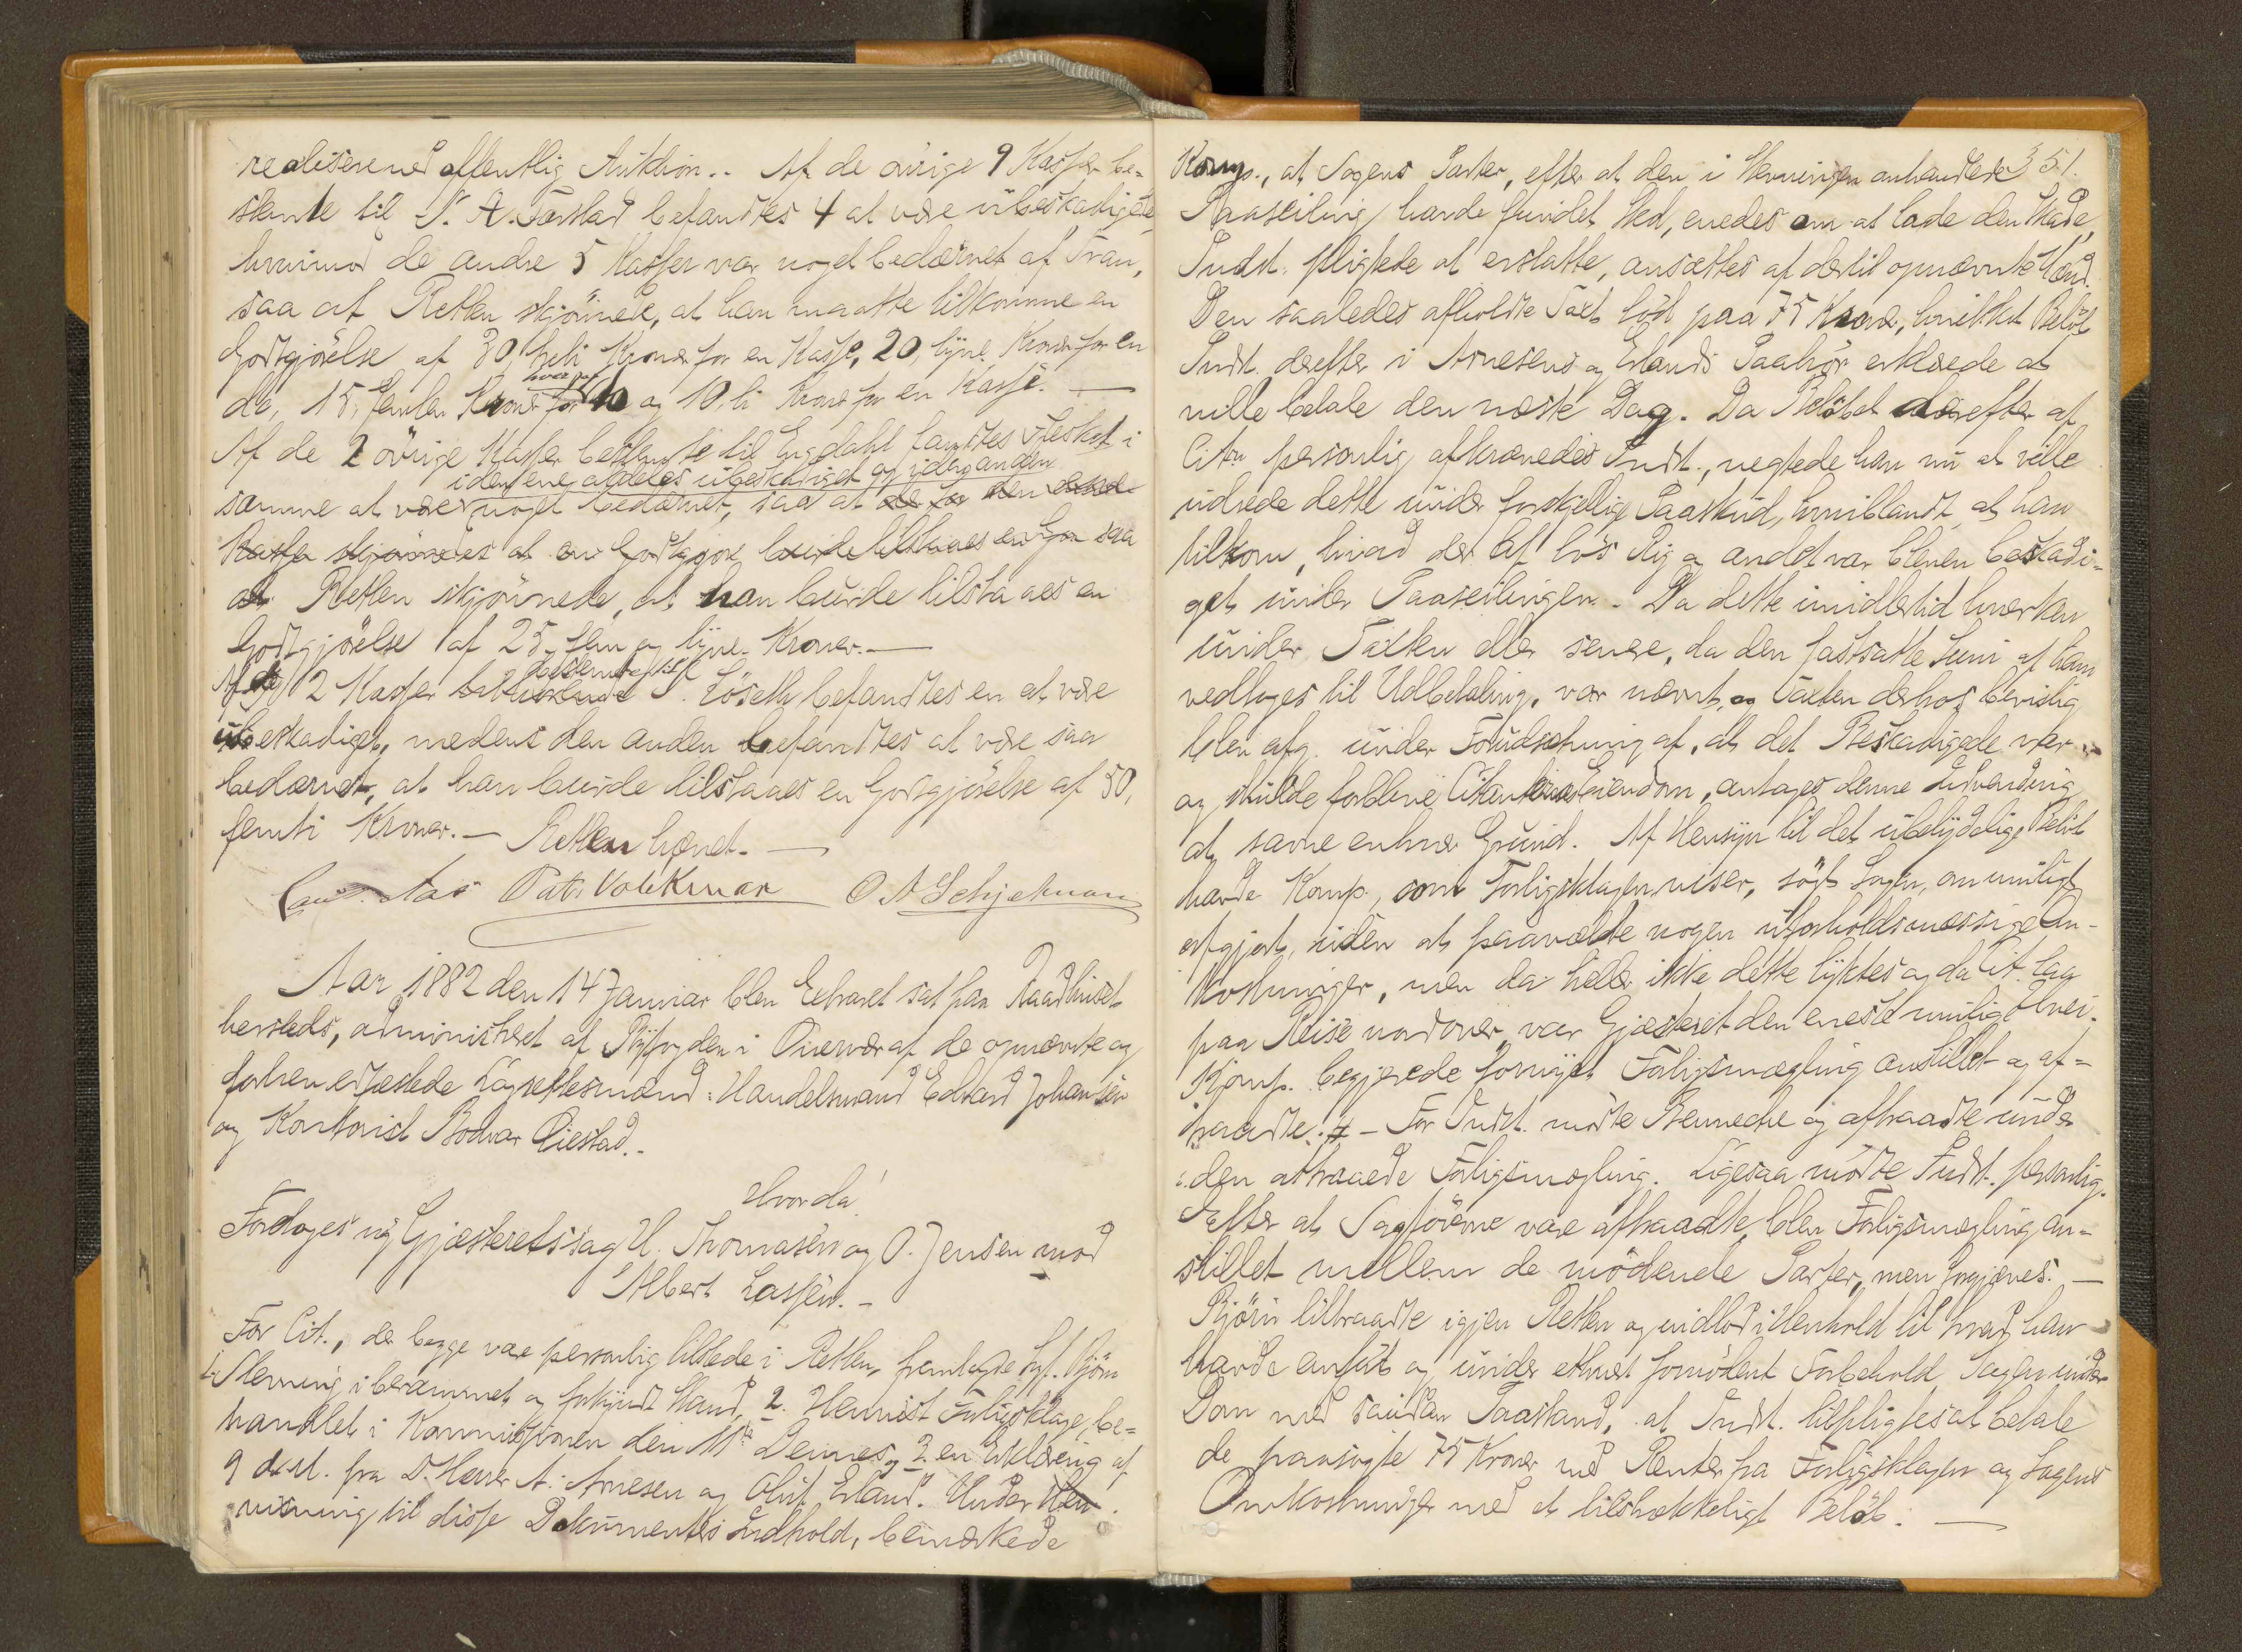 realiseres ved offentlig Auktion.. Af de övrige 9 Kasser be-
stemte til A. Torstad befandtes 4 at være ubeskadigede,
hvorimod de andre 5 Kasser var noget bedærvet af Tran,
saa at Retten skjönnede, at han maatte tilkomme en
Godtgjörelse af 30, treti Kroner for en Kasse, 20, tyve Kroner for en
do, 15, femten Kroner for hver paa 10 og 10, ti Kroner for en Kasse. —
Af de 2 övrige Kasser bestemte til Engdahl fandtes Flesket i
i den ene aldeles ubeskadiget og i den anden
samme at være noget bedærvet, saa at de for den
Kasse skjönnedes at en Godtgjör burde tilstaaes en saa
at Retten skjönnede, at han burde tilstaaes en
Godtgjörelse af 25, fem og tyve Kroner. —
Af de 2 Kasser bestemte til Löseth befandtes en at være
ubeskadiget, medens den anden befandtes at være saa
bedærvet, at han burde tilstaaes en Godtgjörelse af 50,
femti Kroner. — Retten hævet. —
Aas Pat. Volckmar O A Schjelman
Aar 1882 den 14 Januar blev Extraret sat paa Raadhuset
hersteds, administreret af Byfogden i Overvær af de opnævnte og
forhen edfæstede Lagrettesmænd: Handelsmand Edvard Johansen
og Kontorist Bodvar Qiestad. -
Hvorda!
Foretoges ny Gjæsteretssag H. Thomasen og O. Jensen mod
Albert Lassen. -
For Cit., der begge vare personlig tilstede i Retten, fremlagde Sagf. Bjöin
1. Stevning i berammet og forkyndt Stand, 2. Henvist Forligsklage, be-
handlet i Kommissionen den 11te Dennes, 3. en Erklæring af
9 ds. fra D'Herrer A. Arnesen og Oluf Erland. Under Hen-
visning til disse Dokumenters Indhold, bemærkede
351.
Komp., at Sagens Parter, efter at den i Stevningen omhandlede
Paaseiling havde fundet Sted, enedes om at lade den Skade,
Indst. pligtede at erstatte, ansættes af dertil opnævnte Mænd.
Den saaledes afholdte Taxt löd paa 75 Kroner, hvilket Belöb
Indst. derefter i Arnesens og Erlands Paahör erklærede at
ville betale den næste Dag. Da Belöbet derefter af
Citn personlig afkrævedes Indst., negtede han nu at ville
udrede dette under forskjellige Paaskud, hvoriblandt at han
tilkom, hvad der af lös Rig og andet var bleven beskadi-
get under Paaseilingen. Da dette imidlertid hverken
under Taxten eller senere, da den fastsatte Sum af ham
vedtoges til Udbetaling, var nævnt, og Taxten derhos bevislig
blev afg. under Forudsetning af, at det Beskadigede var
og skulde forblive Citanternes Eiendom, antages denne Indvending
at savne enhver Grund. Af Hensyn til det ubetydelige Belöb
havde Komp, som Forligsklagen viser, sögt Sagen, om muligt
afgjort, uden at paavælte nogen uforholdsmæssige Om-
kostninger, men da heller ikke dette lyktes og da Cit. laa
paa Reise nordover, var Gjæsteret den eneste mulige Udvei.
Komp. begjerede fornyet Forligsmægling anstillet og af-
traadte. — For Indst. mötte Bennecke og aftraadte under
den attraaede Forligsmægling. Ligesaa mötte Indst. personlig.
Efter at Sagförerne vare aftraadte, blev Forligsmægling an-
stillet mellem de mödende Parter, men forgjæves. —
Bjöin tiltraadte igjen Retten og indlod i Henhold til hvad han
havde anfört og under ethvert fornödent Forbehold Sagen under
Dom med saadan Paastand, at Indst. tilpligtes at betale
de paasögte 75 Kroner med Renter fra Forligsklagen og Sagens
Omkostninger med et tilstrækkeligt Belöb. —